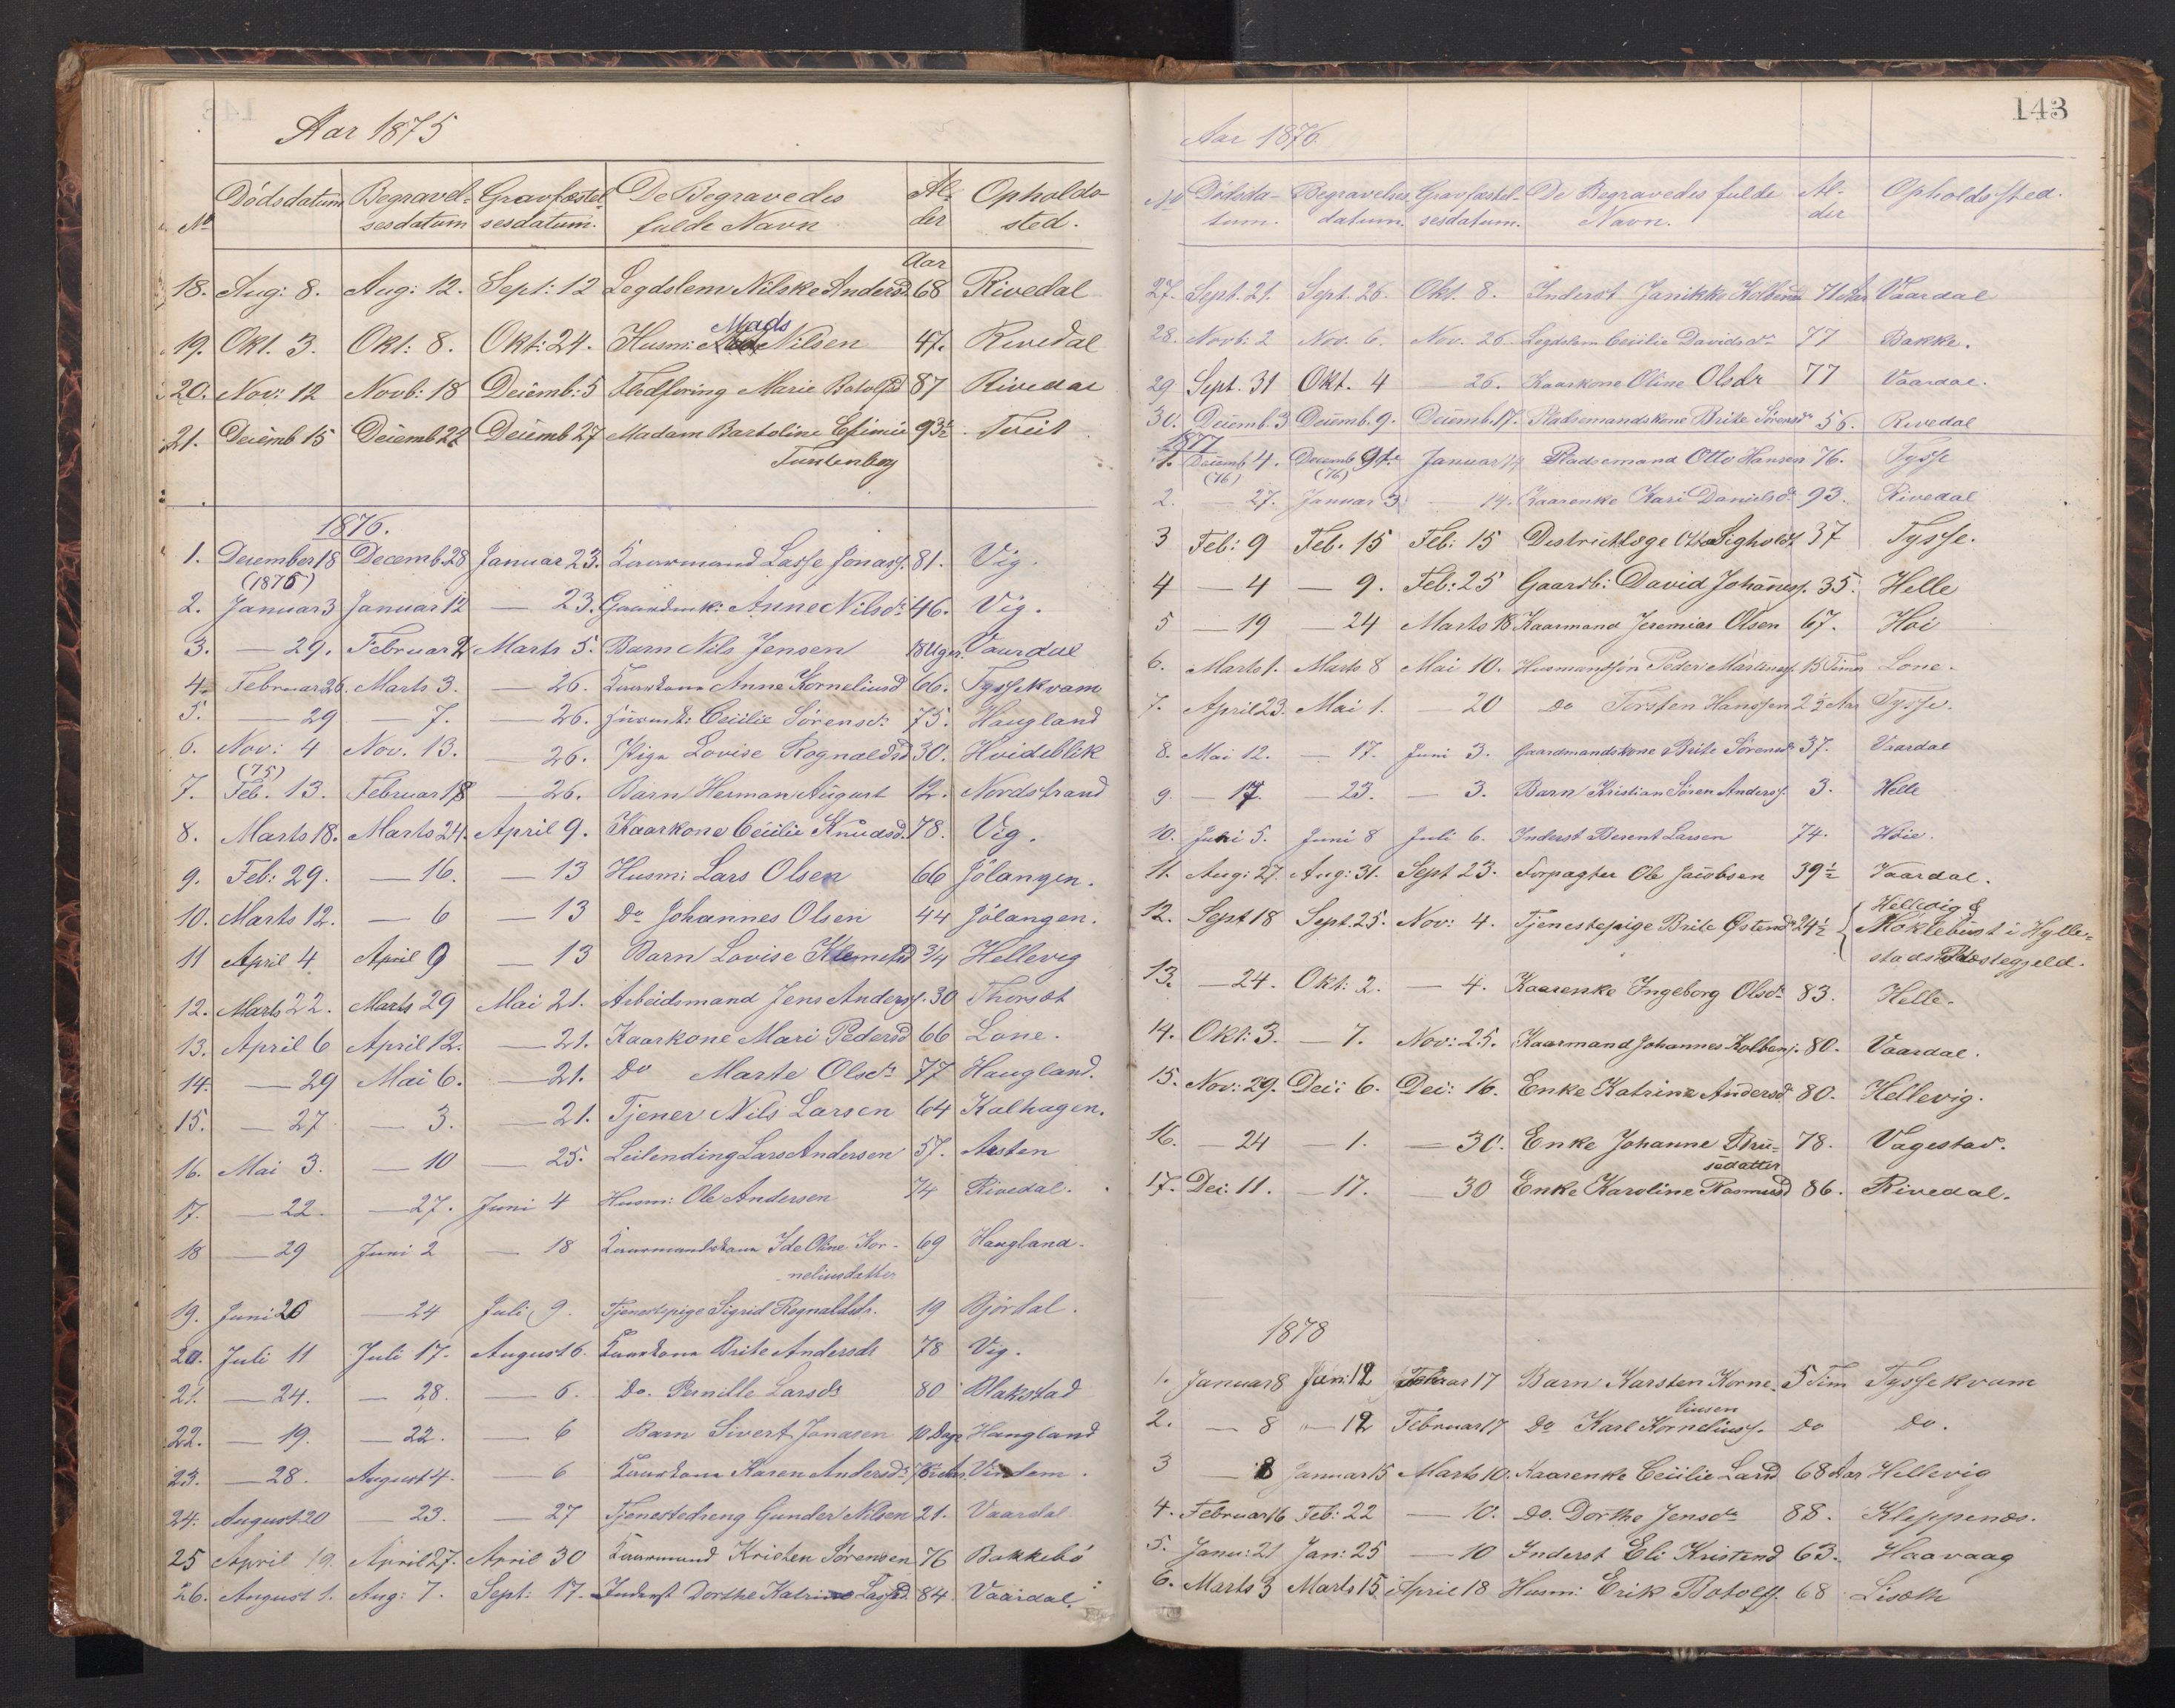 Aar 1875
No Dödsdatum Begravelsesdatum Gravfæstelsesdatum. De Begravedes fulde Navn Alder Opholdssted.
Aar
18. Aug: 8. Aug: 12. Sept: 12 Legdslem Nilske Andersd. 68 Rivedal
Mads
19. Okt. 3. Okt: 8. Okt: 24. Husm: Nilsen 47. Rivedal
20. Nov: 12 Novb: 18 Decemb: 5 Fledføring Marie Botolfsd 87 Rivedal
21. Decemb 15 Decemb 22 Decemb 27 Madam Bartoline 93½ Tveit
1876.
1. December 18 Decemb. 28 Januar 23. Kaarmand Lasse Jonass. 81. Vig.
(1875)
2. Januar 3 Januar 12 — 23. Anne Nilsdr 46. Vig.
3. — 29. Februar 2 Marts 5. Barn Nils Jensen 18 Uger. Vaardal
4. Februar 26. Marts 3. — 26. Kaarkone Anne Korneliusd 66. Tyssekvam
5. — 29 — 7. — 26. Cecilie Sörensdr 75. Haugland
6. Nov: 4 Nov. 13. — 26. Pige Lovise Rognaldsd 30. Hvideblik
(75)
7. Feb. 13. Februar 18 — 26. Barn Herman August 12. Nordstrand
8. Marts 18. Marts 24. April 9. Kaarkone Cecilie Knudsd. 78. Vig.
9. Feb: 29. — 16. — 13 Husm: Lars Olsen 66 Jölangen.
10. Marts 12. — 6 — 13 Do Johannes Olsen 44 Jölangen.
11 April 4 April 9 — 13 Barn Lovise Klemetsd 3/4 Hellevig
12. Marts 22. Marts 29 Mai 21. Arbeidsmand Jens Anderss. 30 Thorsæt
13. April 6 April 12. — 21. Kaarkone Mari Pedersd 66 Lone.
14. — 29 Mai 6. — 21. Do Marte Olsdr 77 Haugland.
15. — 27 — 3. — 21. Tjener Nils Larsen 64 Kalhagen.
16. Mai 3. — 10 — 25. Leilending Lars Andersen 57. Aasten
17. — 22. — 27. Juni 4 Husm: Ole Andersen 74 Rivedal.
18 — 29 Juni 2 — 18 Kaarmandskone Ide Oline Kor- 69 Haugland.
neliusdatter
19. Juni 20 — 24 Juli 9. Tjenestepige Sigrid Rognaldsdr. 19 Björdal.
20. Juli 11 Juli 17. August 6. Kaarkone Brite Andersdr 78 Vig.
21. — 24. — 28. — 6. Do. Pernille Larsdr 80 Blakstad
22. — 19. — 22. — 6 Barn Sivert Jonasen 10 Dage Haugland
23. — 28. August 4. — 6 Kaarkone Karen Andersdr
24. August 20 — 23. — 27 Tjenestedreng Gunder Nilsen 21. Vaardal
25 April 19. April 27. April 30 Kaarmand Kristen Sörensen 76 Bakkebö
26. August 1. Aug: 7. Sept: 17. Inderst Dorthe Katrine Lassed. 84. Vaardal.
143
Aar 1876.
No Dödsdatum. Begravelsesdatum. Gravfæstelsesdatum. De Begravedes fulde Navn. Alder Opholdssted.
27. Sept. 21. Sept. 26. Okt. 8. Inderst Janikke Kolbensd 71 Aar Vaardal
28. Novb: 2 Nov. 6. Nov. 26 Legdslem Cecilie Davidsdr 77 Bakke.
29 Sept. 31 Okt. 4 — 26. Kaarkone Oline Olsdr 77 Vaardal.
30. Decemb. 3 Decemb. 9. Decemb. 17. Pladsemandskone Brite Sörensdr 56. Rivedal
1877
1. Decemb. 4. Decemb 9de Januar 14 Pladsemand Otto Hansen 76. Tysse
(76) (76)
2. — 27. Januar 3 — 14. Kaarenke Kari Danielsdr 93. Rivedal
3 Feb: 9 Feb. 15 Feb: 15 Distriktlæge Otto Sigholdt 37 Tysse.
4 — 4 — 9. Feb: 25 Gaardb: David Johaness. 35. Helle
5 — 19 — 24 Marts 18 Kaarmand Jeremias Olsen 67. Hoi
6. Marts 1. Marts 8 Mai 10. Husmanssön Peder Martinus. 13 Timer Lone.
7. April 23. Mai 1. — 20 Do Torsten Hanssen 2½ Aar Tysse.
8. Mai 12. — 17. Juni 3. Gaardmandskone Brite Sörensdr 37. Vaardal
9. — 17. — 23. — 3. Barn Kristian Sören Anderss. 3. Helle
10. Juni 5. Juni 8 Juli 6. Inderst Berent Larsen 74. Höie.
11. Aug: 27. Aug: 31. Sept 23. Forpagter Ole Jacobsen 39½ Vaardal.
12. Sept 18 Sept. 25. Nov: 4. Tjenestepige Brite Östensdr 24½ Hellevig &
Möklebust i Hylle-
stads Præstegjeld.
13. — 24. Okt: 2. — 4. Kaarenke Ingeborg Olsdr 83. Helle.
14. Okt: 3. — 7. Nov: 25. Kaarmand Johannes Kolbens. 80. Vaardal.
15. Nov: 29. Dec: 6. Dec: 16. Enke Katrine Andersd. 80. Hellevig.
16. — 24 — 1. — 30. Enke Johanne Tru- 78. Vagestad.
sedatter
17. Dec: 11. — 17. 30 Enke Karoline Rasmusd 86. Rivedal.
1878
1. Januar 8 Jan: 12 Februar 17 Barn Karsten Korne- 5 Tim Tyssekvam
liusen
2. — 8 — 12 Februar 17 Do Karl Korneliuss. Do Do.
3 — 8 Januar 15 Marts 10. Kaarenke Cecilie Larsd 68 Aar Hellevig
4. Februar 16 Feb: 22 — 10. Do. Dorthe Jensdr 88. Kleppenes.
5. Janu: 21 Jan: 25 — 10 Inderst Eli Kristensd 63. Haavaag
6. Marts 3 Marts 15 April 18 Husm: Erik Botolfs. 68 Lisæth